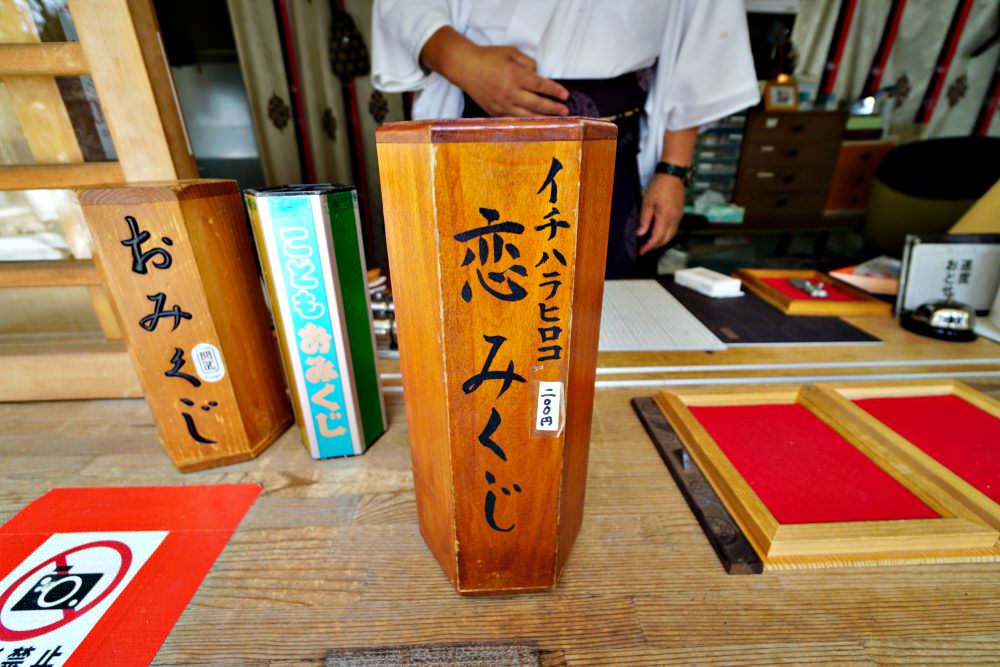 おみくじ
こども
おみくじ
イチハラヒロコ
恋みくじ
二〇〇円
禁止